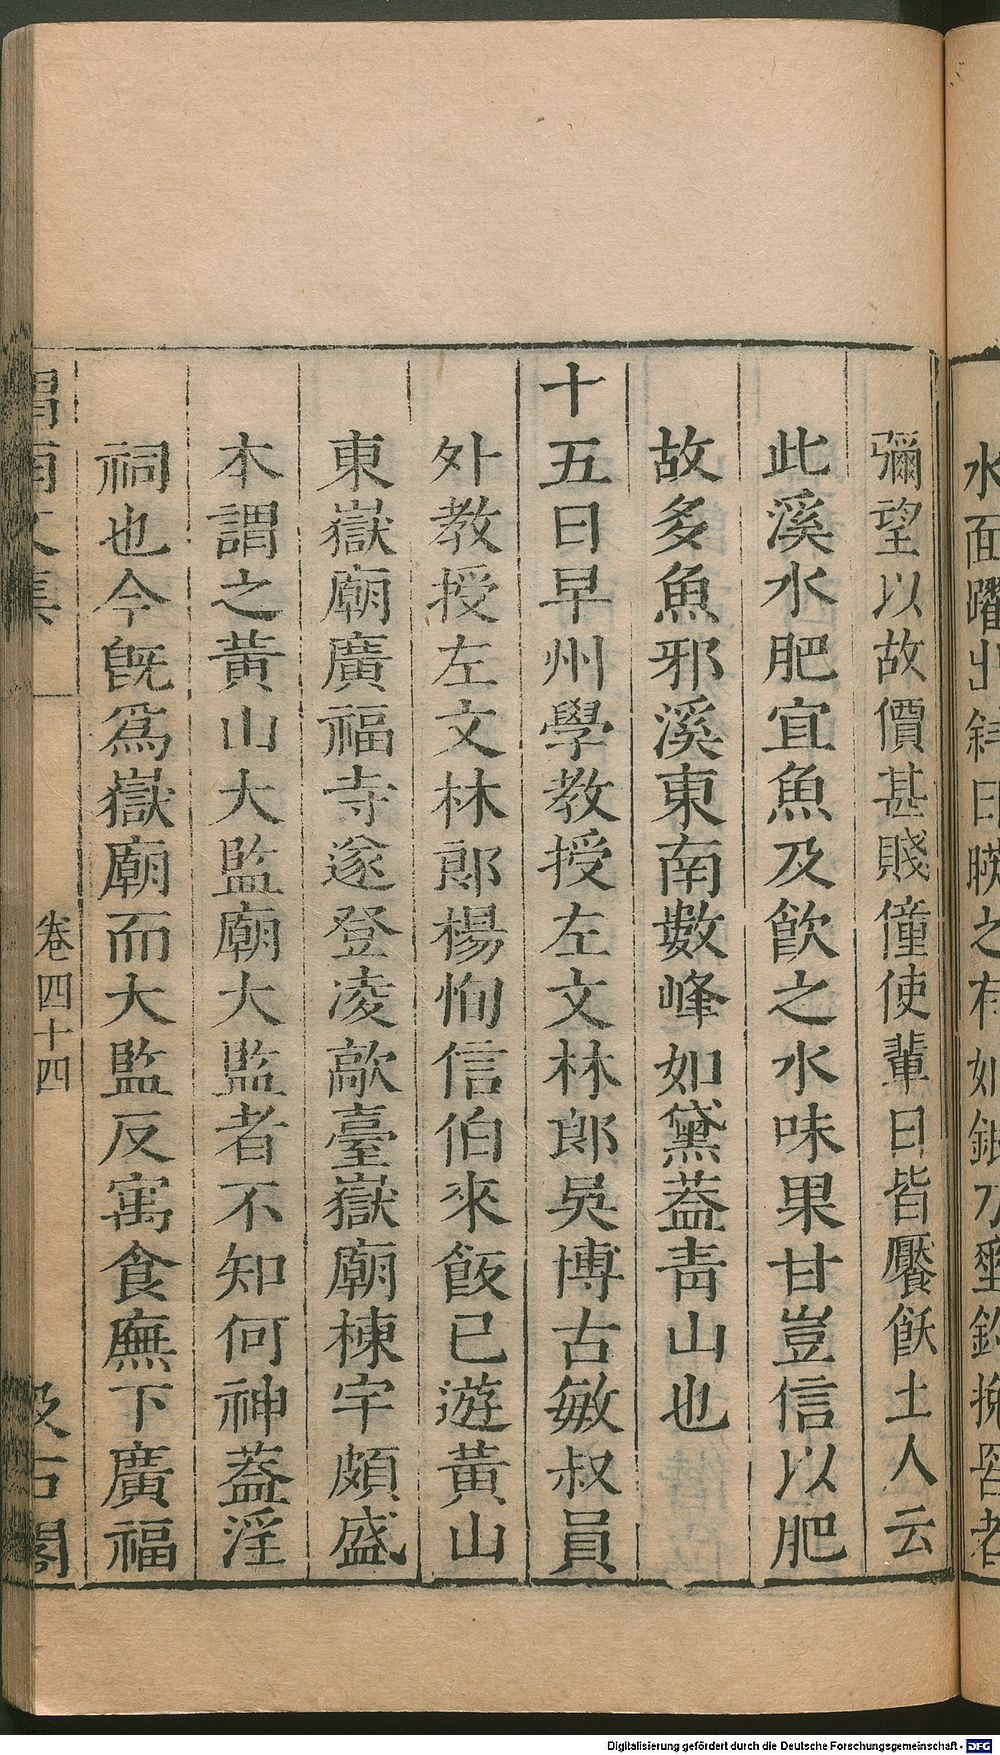 彌望以故價甚賤僮使輩日皆饜飫土人云
此溪水肥宜魚及飲之水味果甘豈信以肥
故多魚邪溪東南數峰如黛蓋青山也
十五日早州學教授左文林郎吳博古敏叔員
外教授左文林郎楊恂信伯來飯已遊黃山
東嶽廟廣福寺遂登凌歊臺嶽廟棟宇頗盛
本謂之黃山大監廟大監者不知何神蓋淫
祠也今旣爲嶽廟而大監反寓食廡下廣福
卷四十四
Digitalisierung gefördert durch die Deutsche Forschungsgemeinschaft - DFG